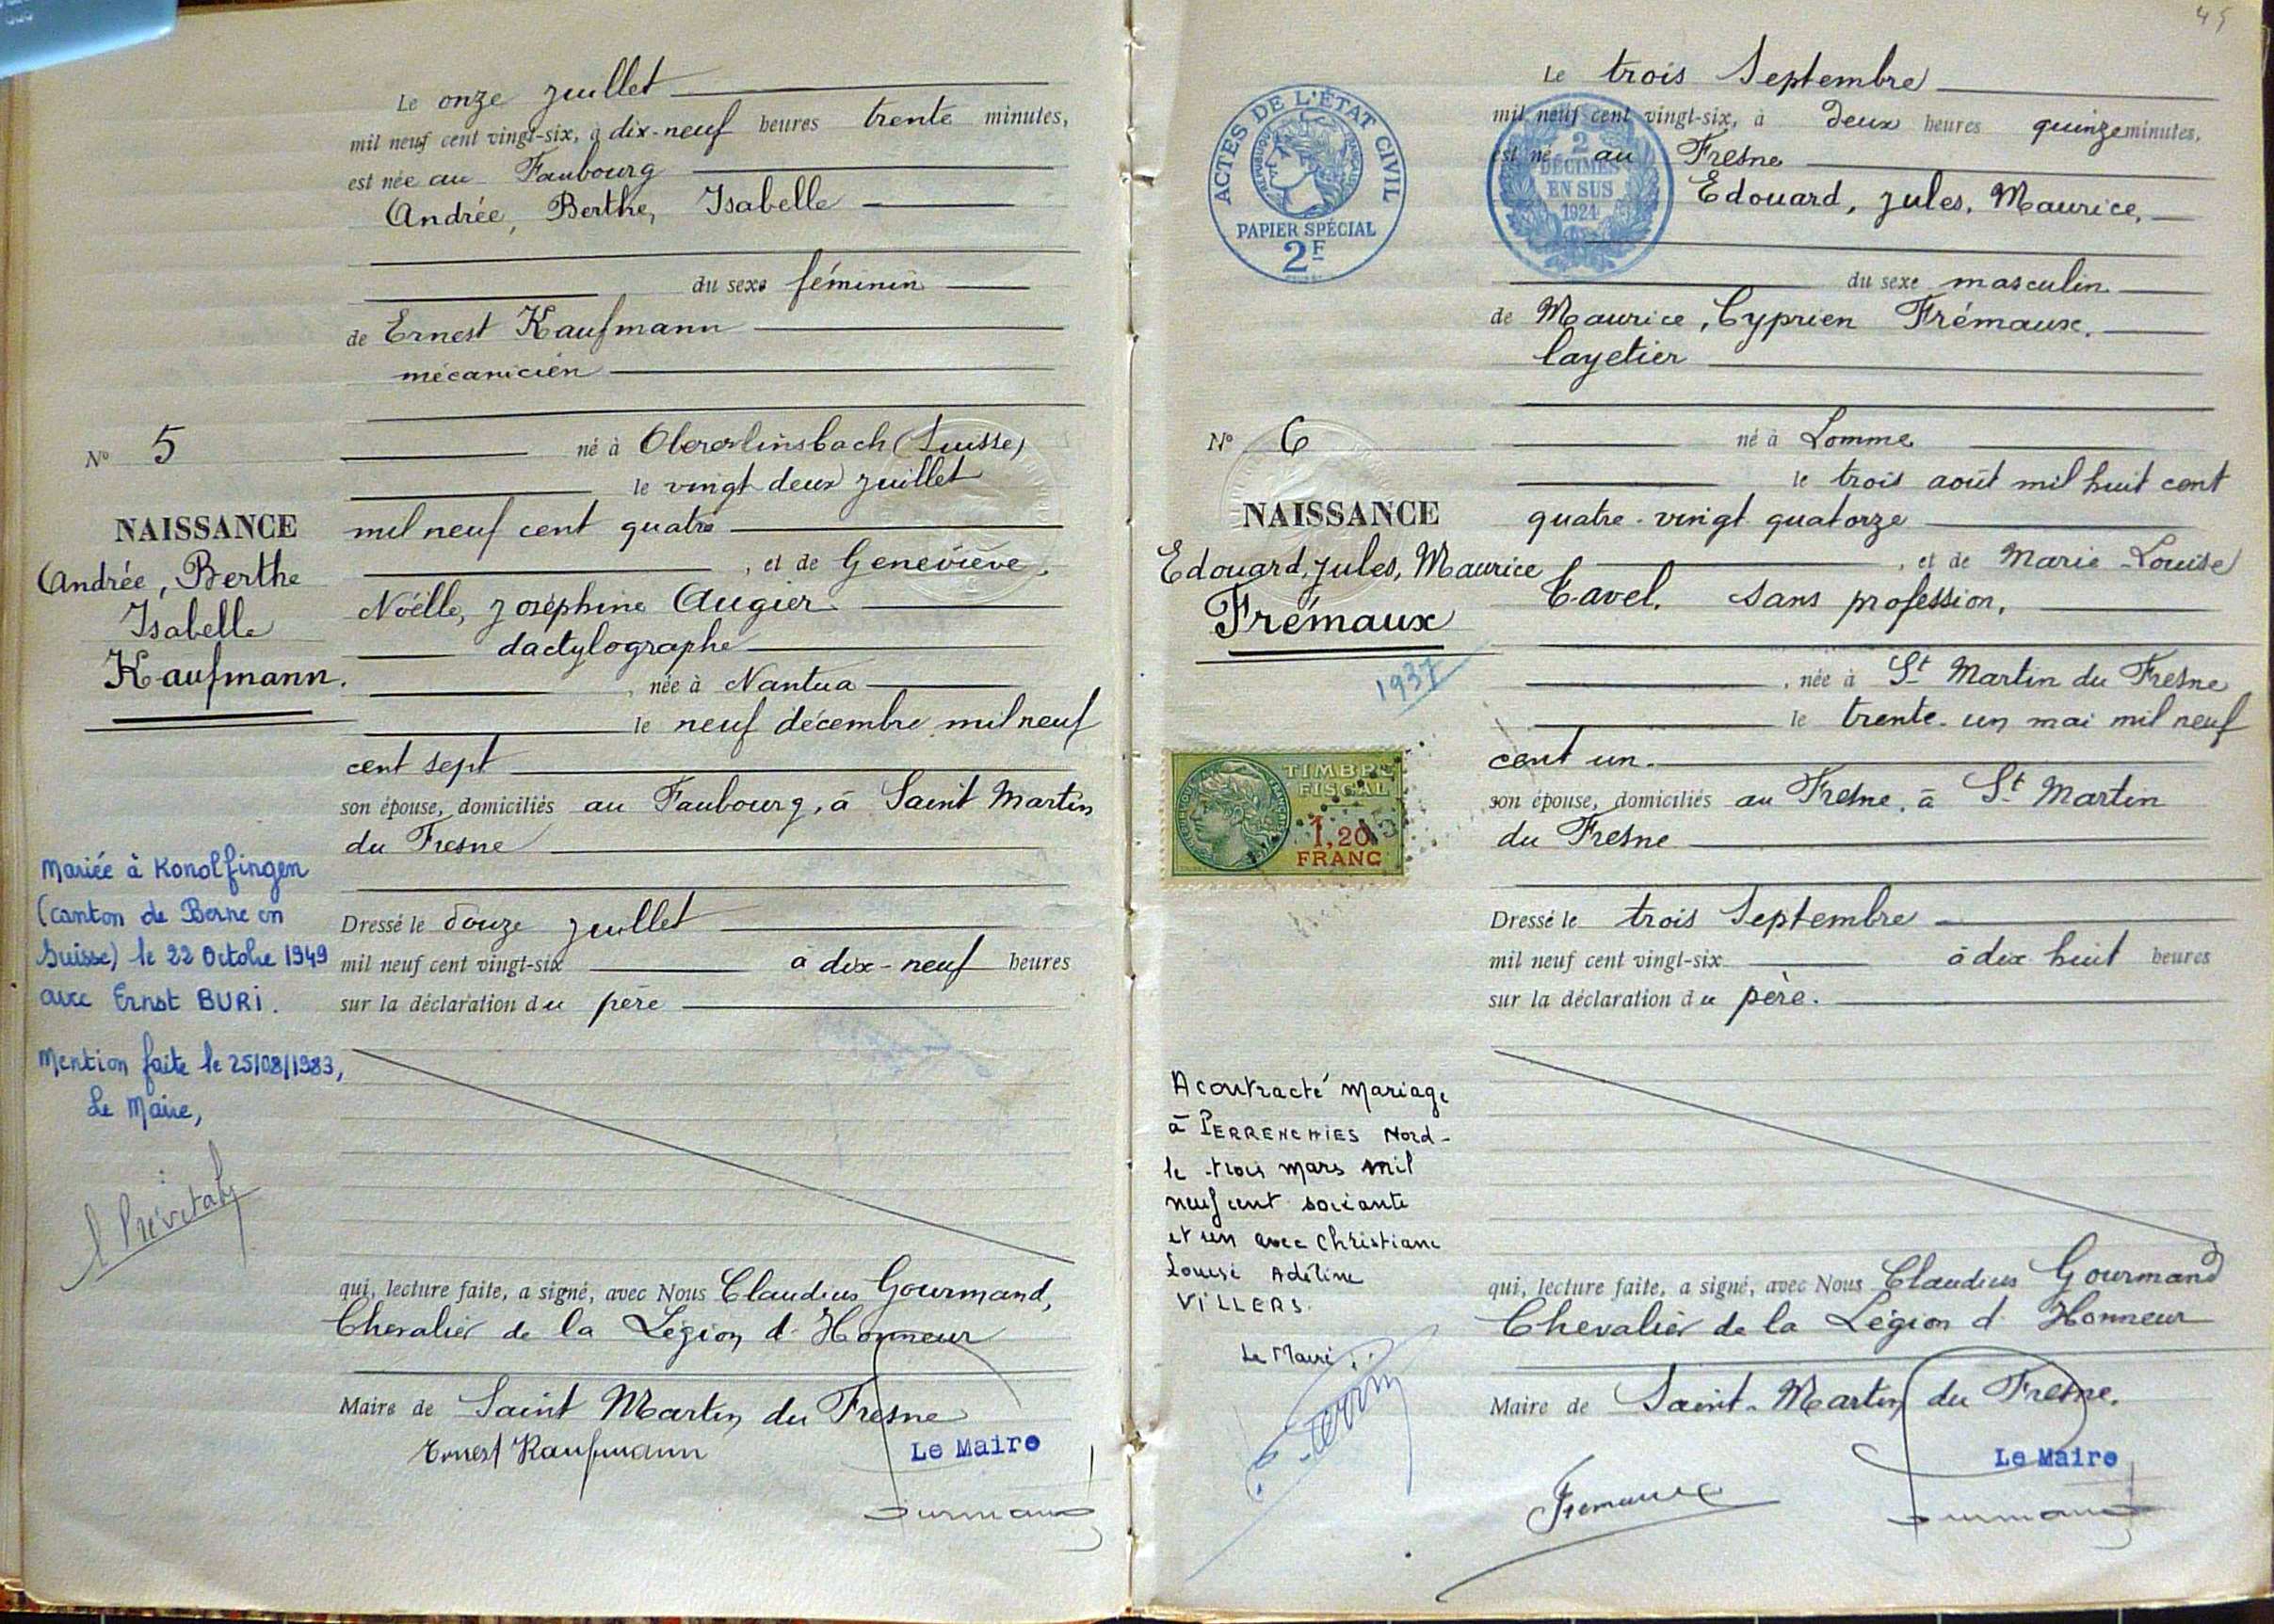 Le onze juillet
mil neuf cent vingt-six, à dix-neuf heures trente minutes,
est née au Faubourg
Andrée, Berthe, Isabelle
du sexe féminin
de Ernest Kaufmann
mécanicien
né à Obererlinsbach (Suisse)
le vingt deux juillet
mil neuf cent quatre
, et de Geneviève,
Noëlle, Joséphine Augier
dactylographe
, née à Nantua
le neuf décembre mil neuf
cent sept
son épouse, domiciliés au Faubourg, à Saint Martin
du Fresne
Dressé le douze juillet
mil neuf cent vingt-six à dix-neuf heures
sur la déclaration du père
qui, lecture faite, a signé, avec Nous Claudius Gourmand,
Chevalier de la Légion d'Honneur
Maire de Saint Martin du Fresne
Ernest Kaufmann
Le Maire
Nº 5
NAISSANCE
Andrée, Berthe
Isabelle
Kaufmann.
Mariée à Konolfingen
(canton de Berne en
Suisse) le 22 Octobre 1949
avec Ernst BURI.
Mention faite le 25/08/1983,
Le Maire,
45
Le trois Septembre
mil neuf cent vingt-six, à deux heures quinze minutes,
est né au Fresne
Edouard, Jules, Maurice,
du sexe masculin
de Maurice, Cyprien Frémaux.
layetier
né à Lomme
le trois août mil huit cent
quatre-vingt quatorze
, et de Marie-Louise
Cavel. sans profession,
, née à St Martin du Fresne
le trente-un mai mil neuf
cent un.
son épouse, domiciliés au Fresne, à St Martin
du Fresne
Dressé le trois Septembre
mil neuf cent vingt-six à dix huit heures
sur la déclaration du père.
qui, lecture faite, a signé, avec Nous Claudius Gourmand
Chevalier de la Légion d'Honneur
Maire de Saint-Martin du Fresne.
Le Maire
Fremaux
ACTES DE L'ÉTAT CIVIL
RÉPUBLIQUE FRANÇAISE
PAPIER SPÉCIAL
2F
2
DÉCIMES
EN SUS
1924
Nº 6
NAISSANCE
Edouard, Jules, Maurice
Frémaux
1937
TIMBRE
FISCAL
1,20
FRANC
A contracté mariage
à PERRENCHIES Nord-
le trois mars mil
neuf cent soixante
et un avec Christiane
Louise Adéline
VILLERS.
Le Maire